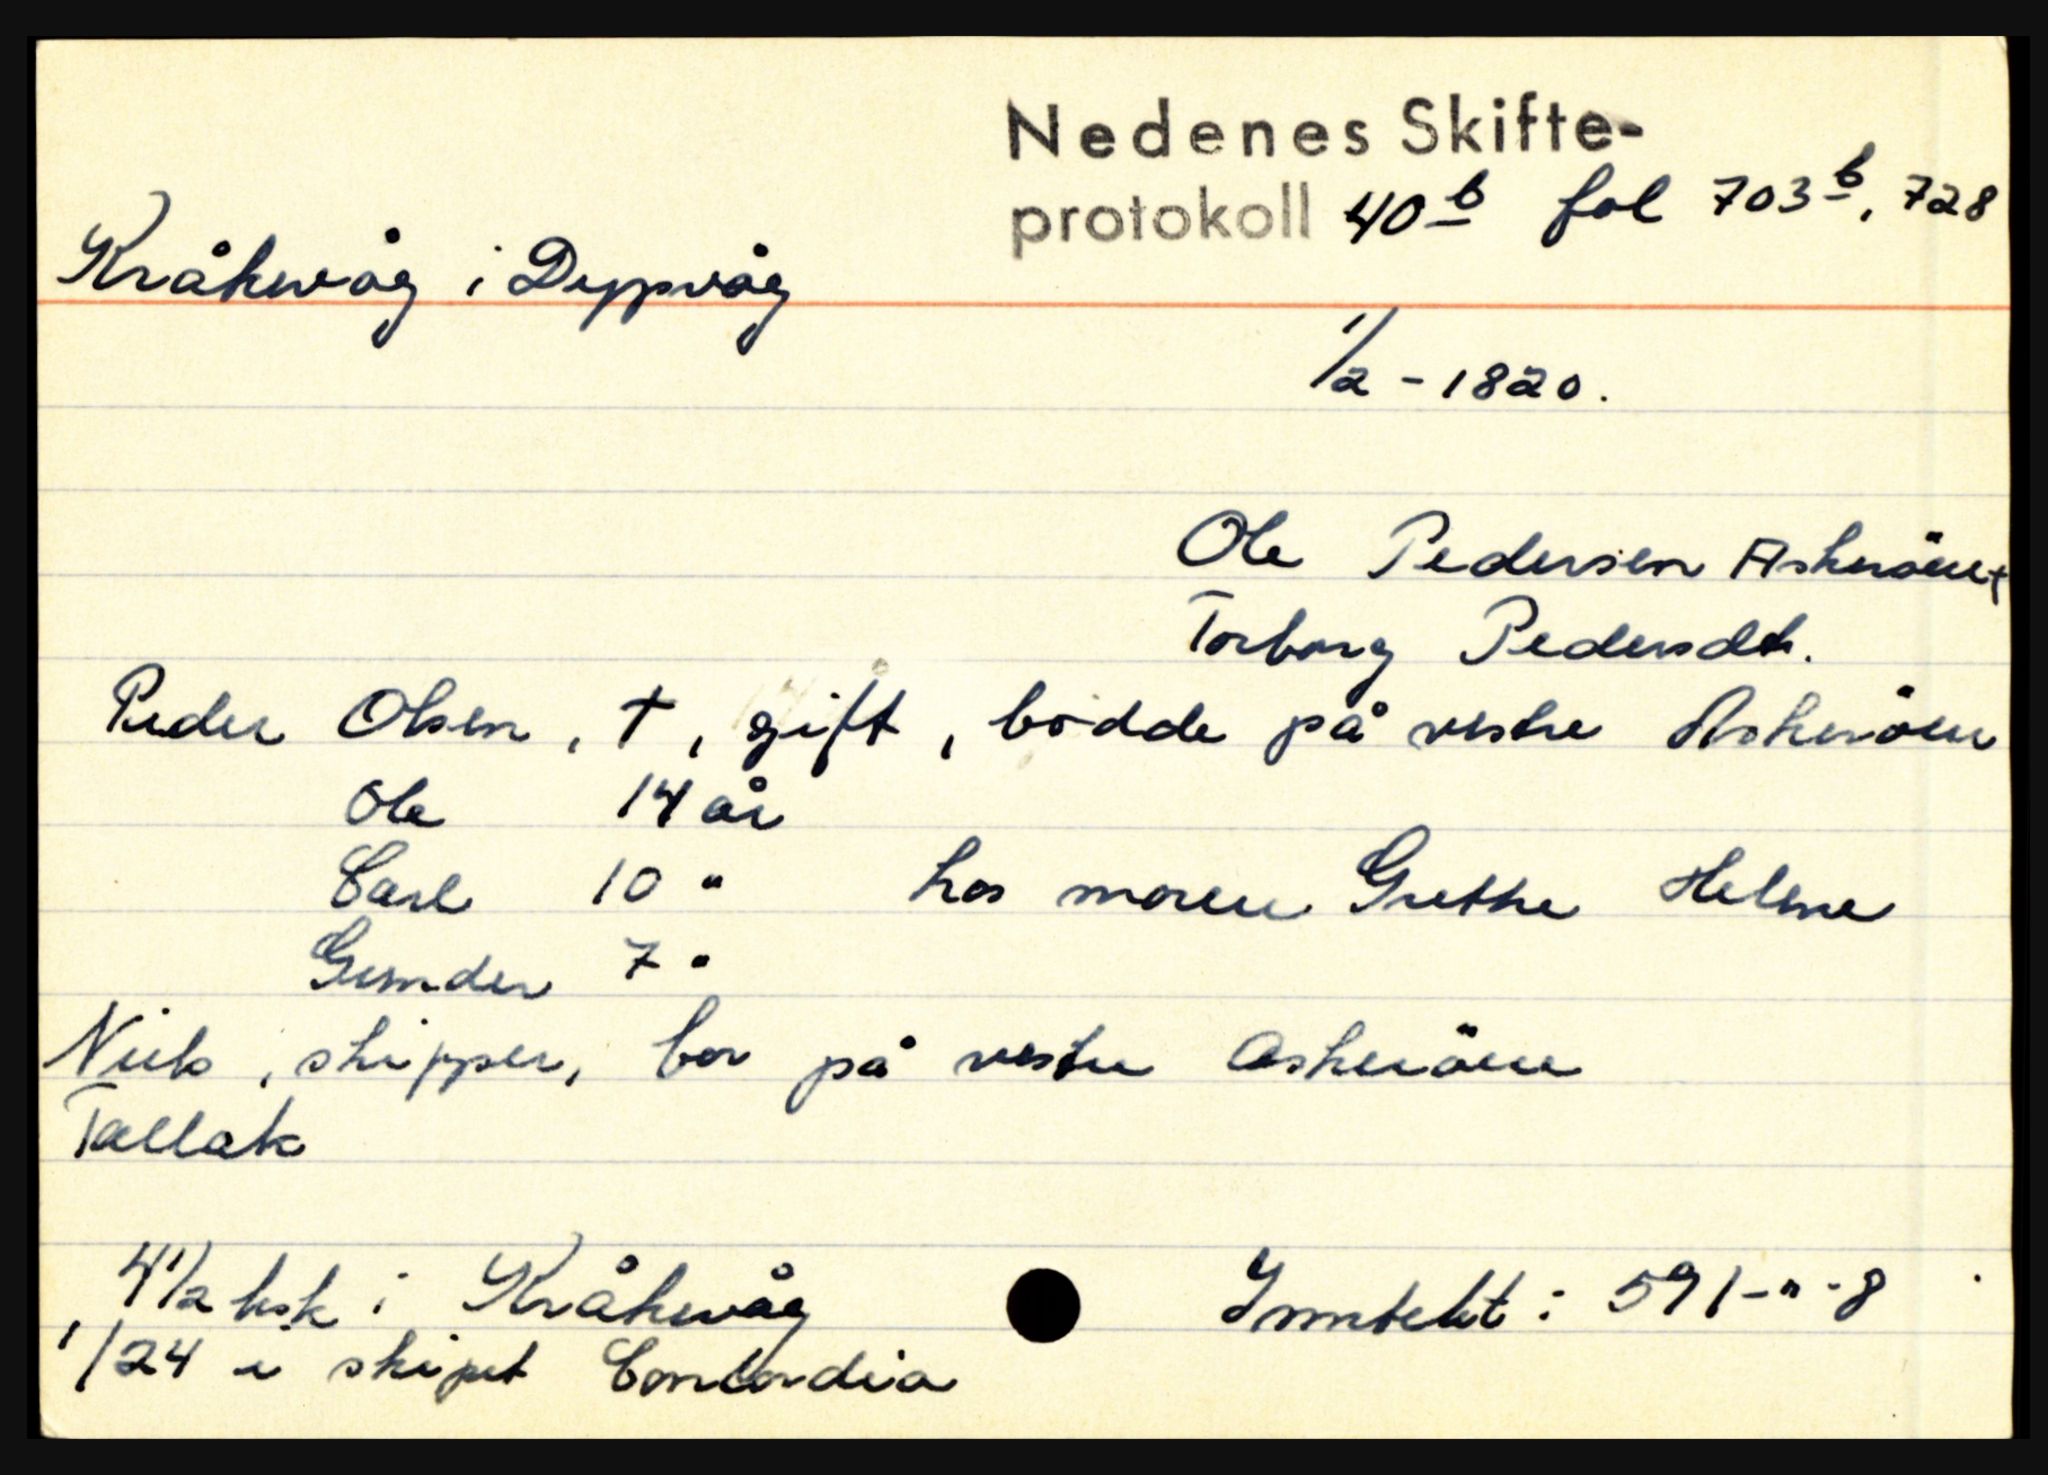 Nedenes Skifte-
protokoll 40b fol 703b, 728
Kråkevåg i Dypvåg
1/2 - 1820.
Ole Pedersen Askerøen +
Torborg Pedersdtr.
Peder Olsen, †, gift, bodde på vestre Askerøen
Ole 14 år
Carl 10 " hos moren Grethe Helene
Gunder 7 "
Niels, skipper, bor på vestre Askerøen
Tallak
4 1/2 ksk i Kråkevåg
Inntekt: 591-"-8
1/24 i skipet Concordia